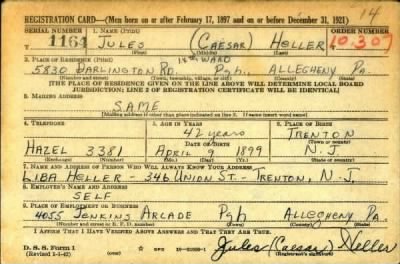 14
REGISTRATION CARD—(Men born on or after February 17, 1897 and on or before December 31, 1921)
SERIAL NUMBER 1. NAME (Print) ORDER NUMBER
1164 JULES (CAESAR) HELLER 10,307
(First) (Middle) (Last)
14TH WARD
2. PLACE OF RESIDENCE (Print)
5830 DARLINGTON RD Pgh., ALLEGHENY PA.
(Number and street) (Town, township, village, or city) (County) (State)
[THE PLACE OF RESIDENCE GIVEN ON THE LINE ABOVE WILL DETERMINE LOCAL BOARD
JURISDICTION; LINE 2 OF REGISTRATION CERTIFICATE WILL BE IDENTICAL]
3. MAILING ADDRESS
SAME
[Mailing address if other than place indicated on line 2. If same insert word same]
4. TELEPHONE 5. AGE IN YEARS 6. PLACE OF BIRTH
42 years TRENTON
DATE OF BIRTH (Town or county)
HAZEL 3381 APRIL 9 1899 N.J.
(Exchange) (Number) (Mo.) (Day) (Yr.) (State or country)
7. NAME AND ADDRESS OF PERSON WHO WILL ALWAYS KNOW YOUR ADDRESS
LIBA HELLER - 346 UNION ST. - TRENTON, N.J.
8. EMPLOYER'S NAME AND ADDRESS
SELF
9. PLACE OF EMPLOYMENT OR BUSINESS
4055 JENKINS ARCADE Pgh ALLEGHENY PA.
(Number and street or R. F. D. number) (Town) (County) (State)
I AFFIRM THAT I HAVE VERIFIED ABOVE ANSWERS AND THAT THEY ARE TRUE.
D. S. S. Form 1
(Revised 1-1-42) GPO Jules (Caesar) Heller
(Registrant's signature)